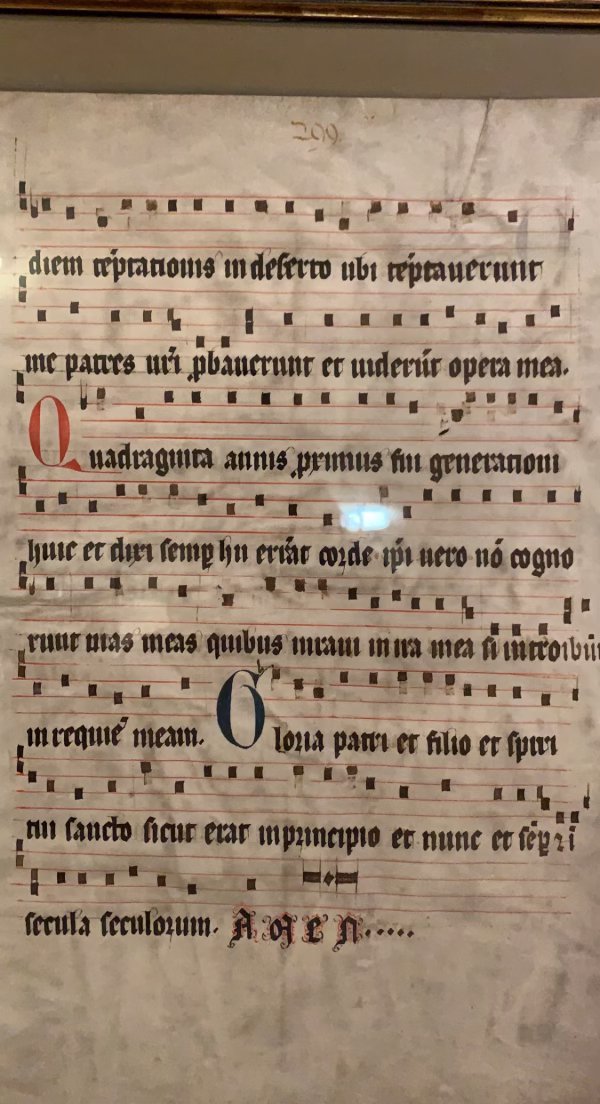 299
diem te͂ptationis in deserto ubi te͂ptauerunt
me patres ur̃i ꝓbauerunt et uiderũt opera mea.
Quadraginta annis proximus fui generationi
huic et dixi semꝑ hii errãt corde ip̃i uero nõ cogno
runt uias meas quibus iuraui in ira mea si introibũt
in requiẽ meam. Gloria patri et filio et spiri
tui sancto sicut erat in principio et nunc et sẽꝑ ⁊ ĩ
secula seculorum. Amen.....